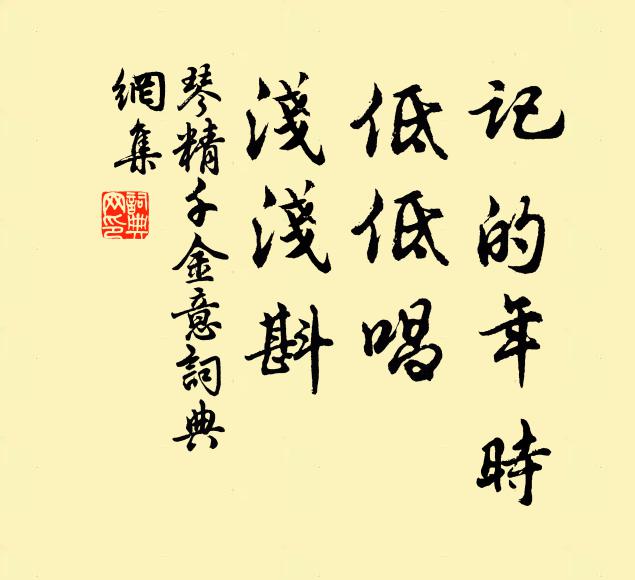 記的年時
低低唱
淺淺斟
琴精千金意詞典
網集
詞典
网印